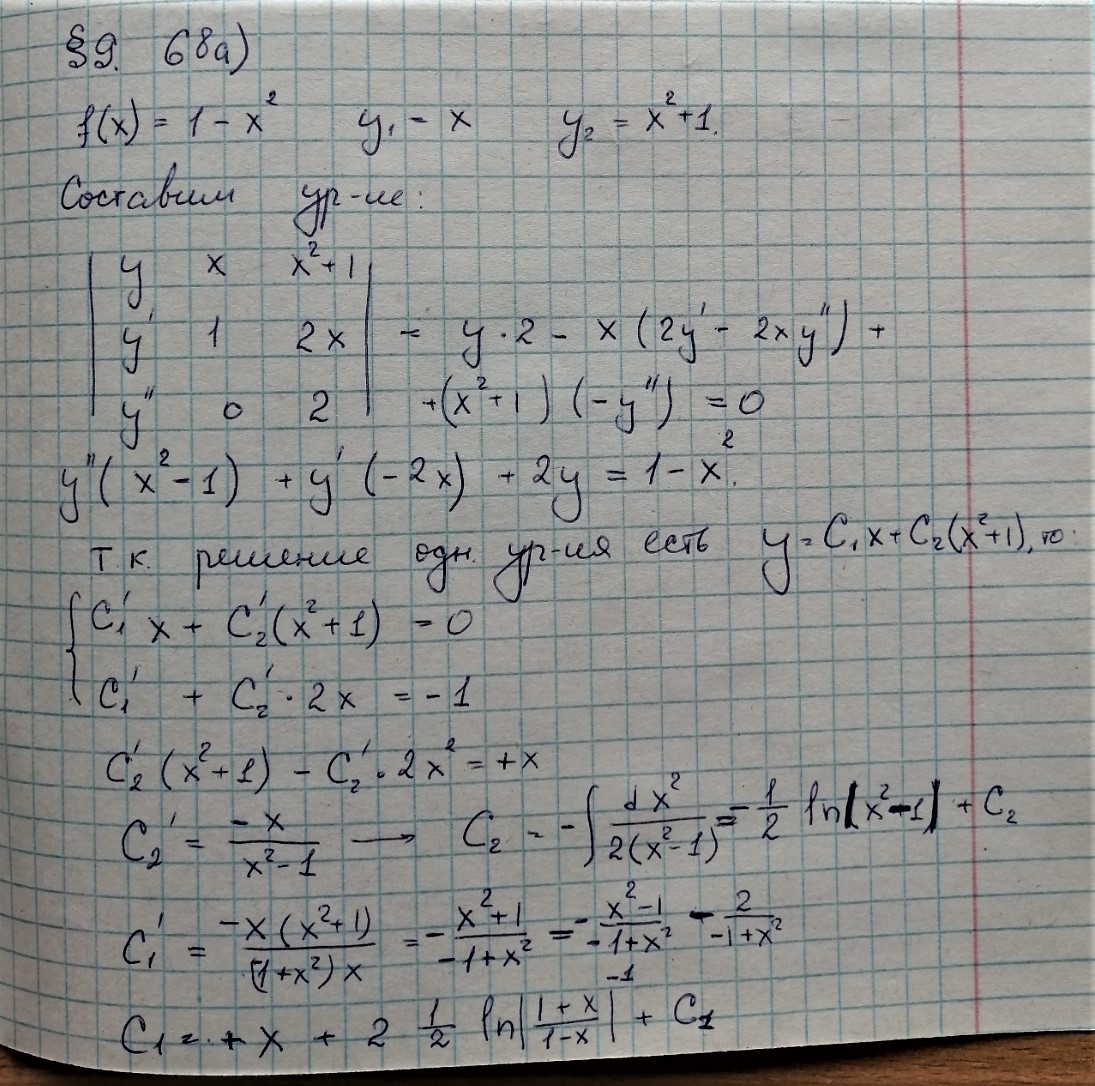 §9. 68а)
f(x) = 1 - x² y₁ = x y₂ = x²+1.
Составим ур-ие:
| y x x²+1 |
| y' 1 2x | = y·2 - x(2y' - 2xy'') +
| y'' 0 2 | +(x²+1)(-y'') = 0
y''(x²-1) + y'(-2x) + 2y = 1 - x².
т.к. решение одн. ур-ия есть y = C₁x + C₂(x²+1), то:
{ C₁'x + C₂'(x²+1) = 0
C₁' + C₂'·2x = -1
C₂'(x²+1) - C₂'·2x² = +x
C₂' = -x/(x²-1) → C₂ = -∫ dx²/(2(x²-1)) = -1/2 ln|x²-1| + C₂
C₁' = -x(x²+1)/((1+x²)x) = -(x²+1)/(-1+x²) = -(x²-1)/(-1+x²) - 2/(-1+x²)
-1
C₁ = + x + 2 1/2 ln|(1+x)/(1-x)| + C₁